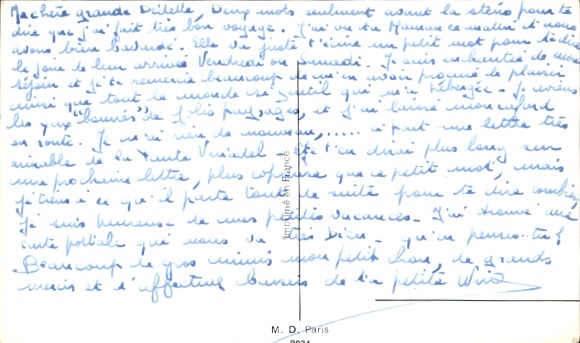 Ma chère grande Dédette, Deux mots seulment avant la sténo pour te
dire que j'ai fait très bon voyage. J'ai vu ta Maman ce matin et nous
avons bien bavardé. Elle va juste t'écrire un petit mot pour te dire
le jour de leur arrivée Vendredi ou Samedi. Je suis enchantée de mon
séjour et je te remercie beaucoup de m'en avoir procuré le plaisir
ainsi que tout le monde si gentil qui m'a hébergée. Je reviens
les yeux "bourrés" de jolis paysages, et j'ai laissé mon cafard
en route. Je ne sais rien de nouveau, ..... à part une lettre très
aimable de la Tante - Je t'en dirai plus long sur
une prochaine lettre, plus copieuse que ce petit mot, mais
je tiens à ce qu'il parte tout de suite pour te dire combien
Je suis heureuse de mes petites vacances. J'ai trouvé une
carte postale qui nous va très bien - qu'en penses-tu ?
Beaucoup de gros mimis mon petit chou, de grands
mercis et d'affectueux baisers de ta petite
Imprimé en France
M. D. Paris